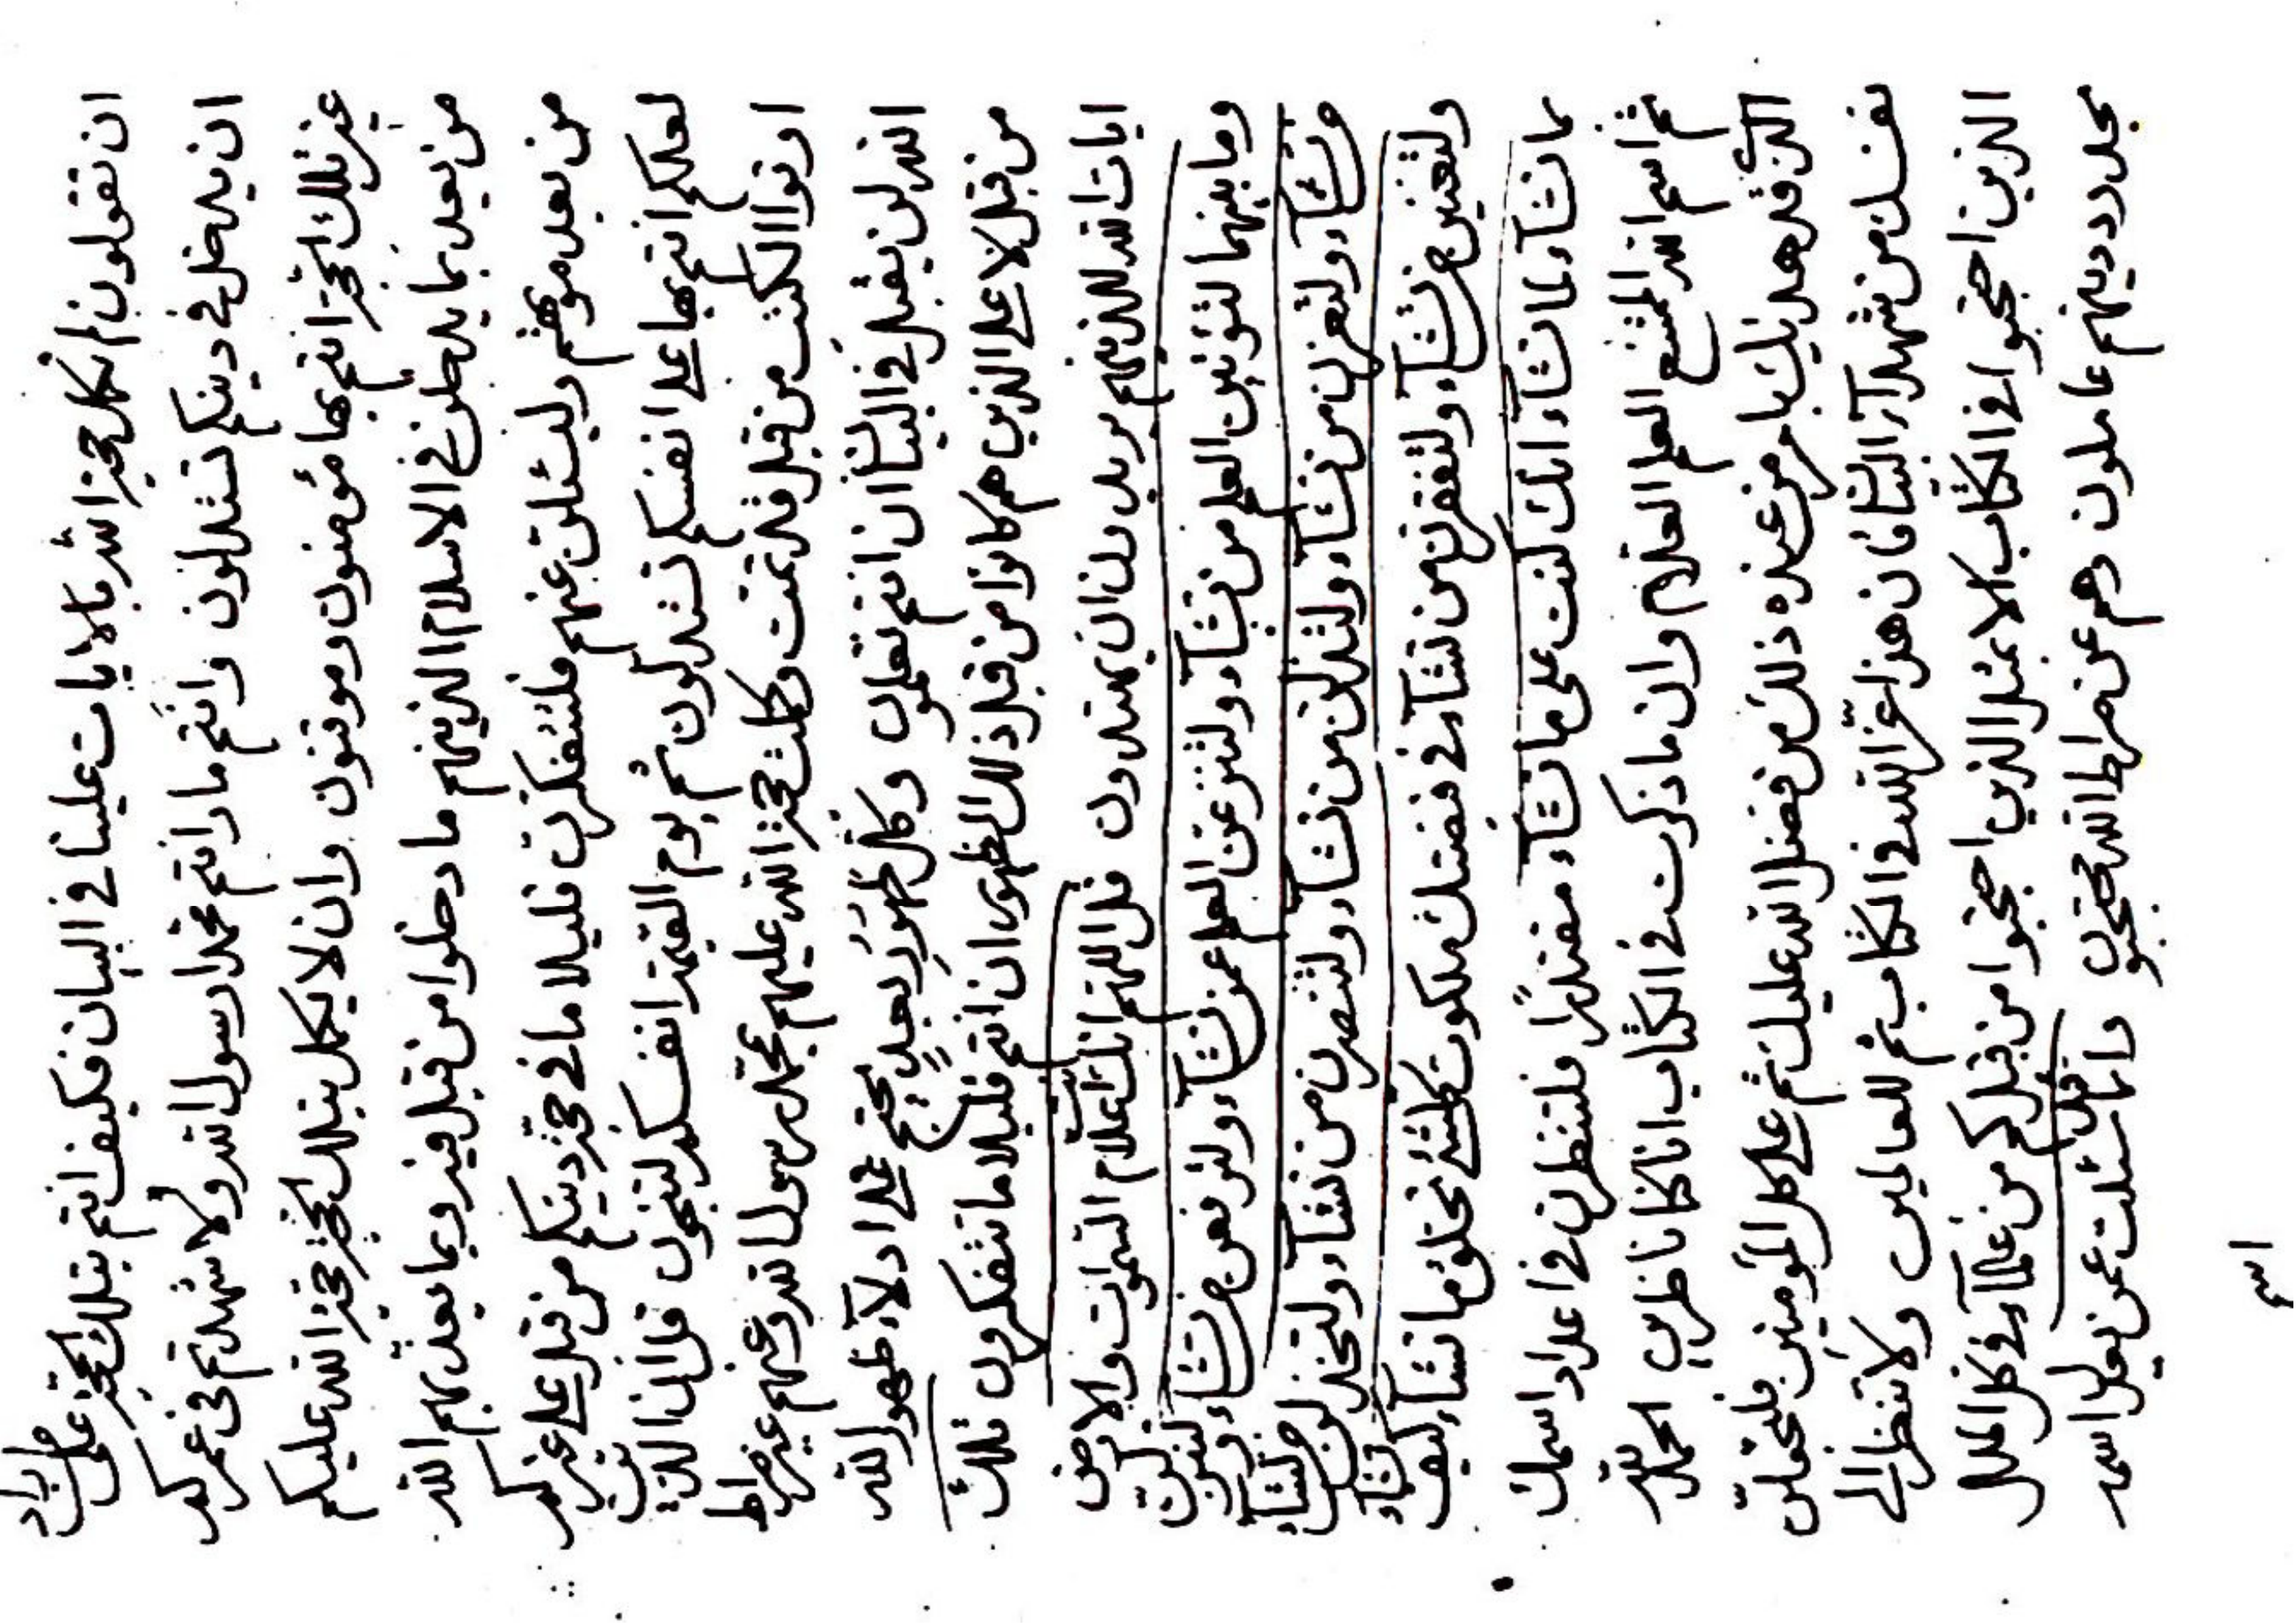 ان تقولون لم تكمل حجة الله بالايات علينا في البيان فكيف انتم بتلك الحجة على من اراد
ان يدخل في دينكم تستدلون وانتم ما رانتم محمدا رسول الله ولا شهدتم في عمركم
غير تلك الحجة انتم بها مؤمنون وموقنون وان لا يكمل بتلك الحجة حجة الله عليكم
من بعد بما يدخلون في الاسلام الذينهم ما دخلوا من قبل فيه وبما يعذبهم الله
من بعد موتهم وليسئلن عنهم فلتتفكرن قليلا ما في حجة دينكم من قبل على غيركم
لعلكم انتم بها على انفسكم تستدلون ثم يوم القيمة انفسكم لتنجون قل ان الذين
اوتوا الكتب من قبل قد تمت وكملت حجة الله عليهم بمحمد رسول الله وعنهم غير صراط
الله لن يقبل في البيان ان انتم تعلمون وكل ظهور بعد يحتج على ادلاء ظهور الله
من قبل لا على الذين هم كانوا من قبل ذلك الظهور ان انتم قليلا ما تتفكرون تلك
ايات الله للذينهم يريدون ان يهتدون قل اللهم انك انت علام السموات والارض
وما بينهما لتؤتين العلم من تشاء ولتنزعن العلم عمن تشاء ولترفعن من تشاء ولتنزلن
من تشاء ولتعزن من تشاء ولتذلن من تشاء ولتنصرن من تشاء ولتخذلن من تشاء
ولتغنين من تشاء ولتفقرن من تشاء في قبضتك ملكوت كلشئ تخلق ما تشاء كيف تشاء
بما تشاء لما تشاء انك كنت على ما تشاء مقتدرا فلتنظرن في اعداد اسمك
ثم اسم الله الممتنع العلم العلام وان ما ذكرت في الكتاب انا كنا ناظرين الحمد لله
الذي قد هديك بامر من عنده ذلك من فضل الله عليك ثم على كل المؤمنين فلتخلصن
نفسك من شهداء البيان فان هذا عز الله في الكتاب ثم للعالمين ولا تنظر الى
الذين احتجبوا في الكتاب الا بمثل الذين احتجبوا من قبلكم من علماء في كل الملل
بحدود دينهم عاملون وهم عن صراط الله محتجبون وانما قد سئلت عمن يعلو اسمه
اسم